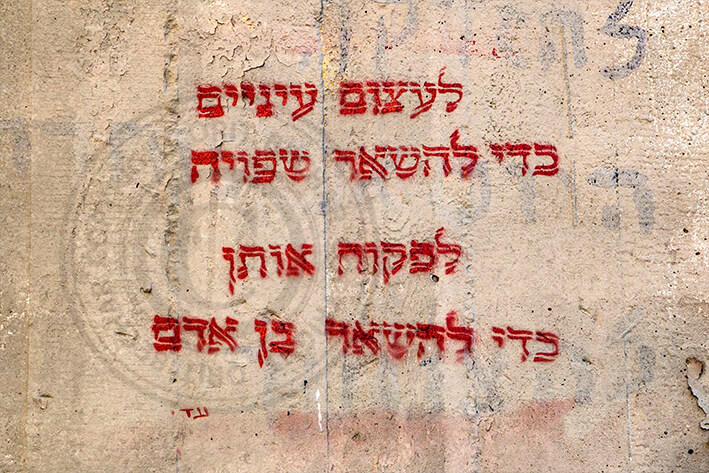 לעצום עיניים
כדי להשאר שפויה
לפקוח אותן
כדי להשאר בן אדם
עד